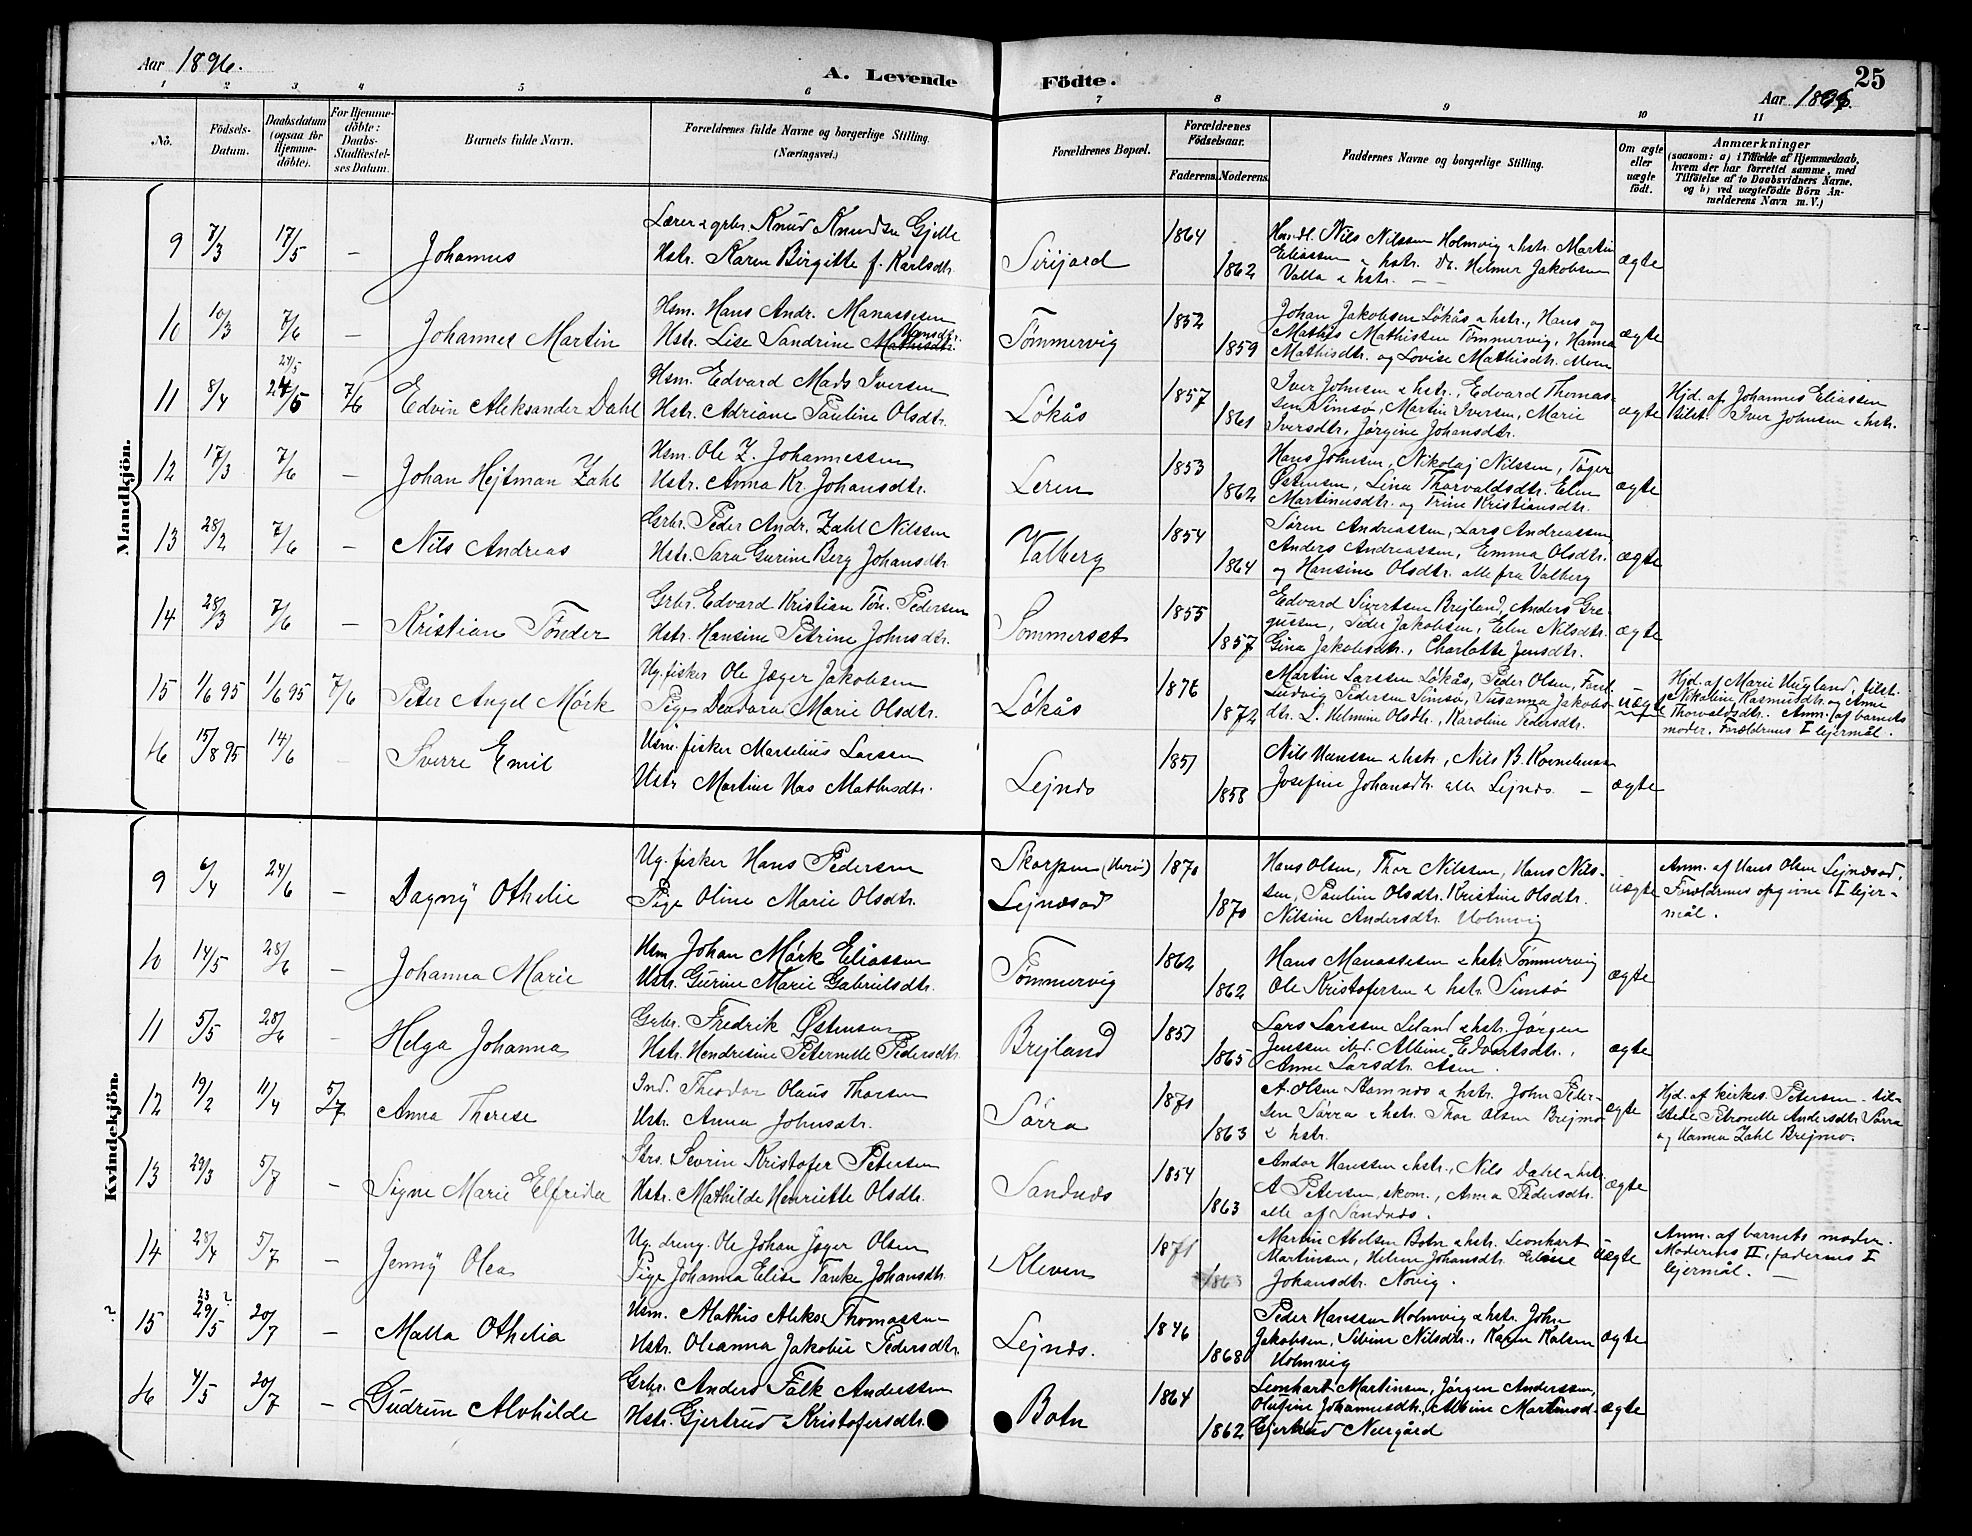 Aar 1896.
A. Levende Födte.
25
Aar 1896.
1 2 3 4 5 6 7 8 9 10 11
No.
Födsels-Datum.
Daabsdatum (ogsaa for Hjemme-döbte).
For Hjemme-döbte: Daabs-Stadfæstel-ses Datum.
Barnets fulde Navn.
Forældrenes fulde Navne og borgerlige Stilling. (Næringsvei.)
Forældrenes Bopæl.
Forældrenes Födselsaar.
Faderens. Moderens.
Faddernes Navne og borgerlige Stilling.
Om ægte eller uægte födt.
Anmærkninger
(saasom: a) i Tilfælde af Hjemmedaab,
hvem der har forrettet samme, med
Tilföielse af to Daabsvidners Navne,
og b) ved uægtefödte Börn An-
melderens Navn m. V.)
Mandkjön.
9 7/3 17/5 — Johannes
Lærer & grbr. Knud Knudsen Gjelle
Hstr. Karen Birgitte f. Karlsdtr.
Sirijord 1864 1862
Handl. Nils Nilssen Holmvig & hstr. Martin
Eliassen & hstr. Dr. Helmer Jakobsen
Valla & hstr. —
ægte
10 10/3 7/6 — Johannes Martin
Hsm. Hans Andr. Manassesen
Hstr. Lise Sandrine Mathisdtr. Hansdtr.
Tømmervig 1852 1859
Johan Jakobsen Løkås & hstr., Hans og
Mathis Mathissen Tømmervig, Hanna
Mathisdtr. og Lovise Mathisdtr.
ægte
11 8/4 24/5 24/5 7/6 Edvin Aleksander Dahl
Hsm. Edvard Mads Iversen
Hstr. Adriane Pauline Olsdtr.
Løkås 1857 1861
Iver Johnsen & hstr., Edvard Thomas-
sen Simsø, Martin Iversen, Marie
Iversdtr, Jørgine Johansdtr.
ægte
Hjd. af Johannes Eliassen
tilst. Iver Johnsen & hstr.
12 17/3 7/6 — Johan Hejtman Zahl
Hsm. Ole Z. Johannessen
Hstr. Anna Kr. Johansdtr.
Leren 1853 1862
Hans Johnsen, Nikolaj Nilssen, Tøger
Østensen, Lina Thorvaldsdtr. Elen
Martinusdtr. og Trine Kristiansdtr.
ægte
13 28/2 7/6 — Nils Andreas
Grbr. Peder Andr. Zahl Nilssen
Hstr. Sara Gurine Berg Johansdtr.
Valberg 1854 1864
Søren Andreassen, Lars Andreassen
Anders Andreassen, Emma Olsdtr.
og Hansine Olsdtr. alle fra Valberg
ægte
14 28/3 7/6 — Kristian Tönder
Grbr. Edvard Kristian Tön. Pedersen
Hstr. Hansine Petrine Johnsdtr.
Sommerset 1855 1857
Edvard Sivertsen Brejland, Anders Gre-
gussen, Peder Jakobsen, Elen Nilsdtr.
Gina Jakobsdtr., Charlotte Jensdtr.
ægte
15 1/6 95 1/6 95 7/6 Peter Angel Mørk
Ug. fisker Ole Jæger Jakobsen
Pige Deodora Marie Olsdtr.
Løkås 1876 1872
Martin Larssen Løkås, Peder Olsen,
Ludvig Pedersen Simsø, Susanna Jakobs-
dtr. L. Helmine Olsdtr., Karoline Pedersdtr.
uægte
Hjd. af Marie Hugland, tilst.
Nikoline Rasmusdtr. og Anne
Thorvaldsdtr. Anm. af barnets
moder. Forældrenes I lejermål.
16 15/8 95 14/6 Sverre Emil
Hsm. fisker Marselius Larssen
Hstr Martine Has Mathisdtr.
Lejnæs 1851 1858
Nils Hanssen & hstr., Nils B. Korneliussen
Josefine Johansdtr. alle Lejnæs —
ægte
Kvindekjön.
9 6/4 24/6 — Dagny Othelie
Ug. fisker Hans Pedersen
Pige Oline Marie Olsdtr.
Skorpen (Herö) Lejnæsød 1870 1870
Hans Olsen, Thor Nilssen, Hans Nils-
sen, Pauline Olsdtr. Kristine Olsdtr.
Nilsine Andersdtr. Holmvig
uægte
Anm. af Hans Olsen Lejnæsød,
Forældrenes opgivne I lejer-
mål.
10 14/5 28/6 — Johanna Marie
Hsm Johan Mørk Eliassen
Hstr. Gurine Marie Gabrielsdtr.
Tømmervig 1862 1862
Hans Manassesen & hstr. Tømmervig
Ole Kristofersen & hstr. Simsø
ægte
11 5/5 28/6 — Helga Johanna
Grbr. Fredrik Østensen
Hstr. Hendresine Peternelle Pedersdtr.
Brejland 1851 1865
Lars Larssen Leland & hstr. Jørgen
Jenssen ibd. Albine Edvartsdtr.,
Anne Larsdtr. Åsen
ægte
12 19/2 11/4 5/7 Anna Therese
Ind. Theodor Olaus Thorsen
Hstr. Anna Johnsdtr.
Sørra 1871 1863
A. Olsen Stamnæs & hstr. John Peder-
sen Sørra & hstr. Thor Olsen Brejmo
& hstr.
ægte
Hjd. af kirkes. Petersen — til-
stede Petronelle Andersdtr. Sørra
og Hanna Zahl Brejmo.
13 29/3 5/7 — Signe Marie Elfrida
Strs. Sevrin Kristofer Petersen
Hstr. Mathilde Henriette Olsdtr.
Sandnæs 1854 1863
Andor Hanssen & hstr., Nils Dahl & hstr
A Petersen, skom., Anna Pedersdtr.
alle af Sandnæs.
ægte
14 28/4 5/7 — Jenny Olea
Ug. dreng. Ole Johan Jæger Olsen
Pige Johanna Elise Tanke Johansdtr.
Kleven 1871 1863
Martin Abelsen Botn & hstr. Leonhart
Martinsen, Helene Johansdtr. Eline
Johansdtr. Növig.
uægte
Anm. af barnets moder.
Moderens II, faderens I
lejermål. —
? 15 23 ? 29/5 20/7 — Malla Othelia
Hsm. Mathis Aleks. Thomassen
Hstr. Oleanna Jakobie Pedersdtr.
Lejnæs. 1846 1868
Peder Hanssen Holmvig & hstr. John
Jakobsen, Sibine Nilsdtr., Karen Kalsen
Holmvig
ægte
16 4/5 20/7 — Gudrun Alvhilde
Grbr. Anders Falk Anderssen
Hstr. Gjertrud Kristofersdtr.
Botn 1864 1862
Leonhart Martinsen, Jørgen Anderssen,
Olufine Johannesdtr., Albine Martinsd.
Gjertrud Nergård
ægte